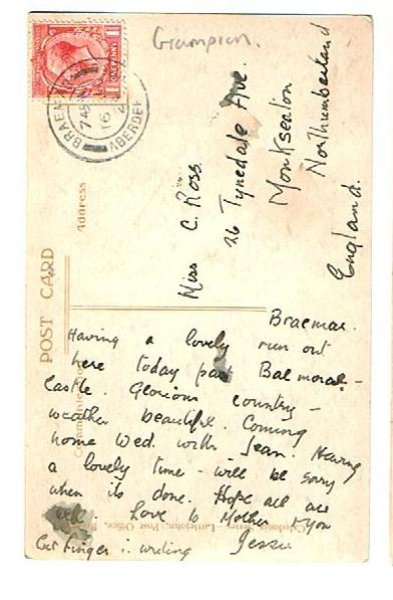 Grampian.
ONE PENNY
BRAEMAR
ABERDEEN
Address
Miss C. Ross
26 Tynedale Ave.
Monkseaton
Northumberland
England.
POST CARD
Braemar.
Having a lovely run out
here today past Balmoral
Castle. Glorious country –
weather beautiful. Coming
home Wed. with Jean. Having
a lovely time - will be sorry
when its done. Hope all are
well. Love to Mother & you
Jessie
Cut finger is writing